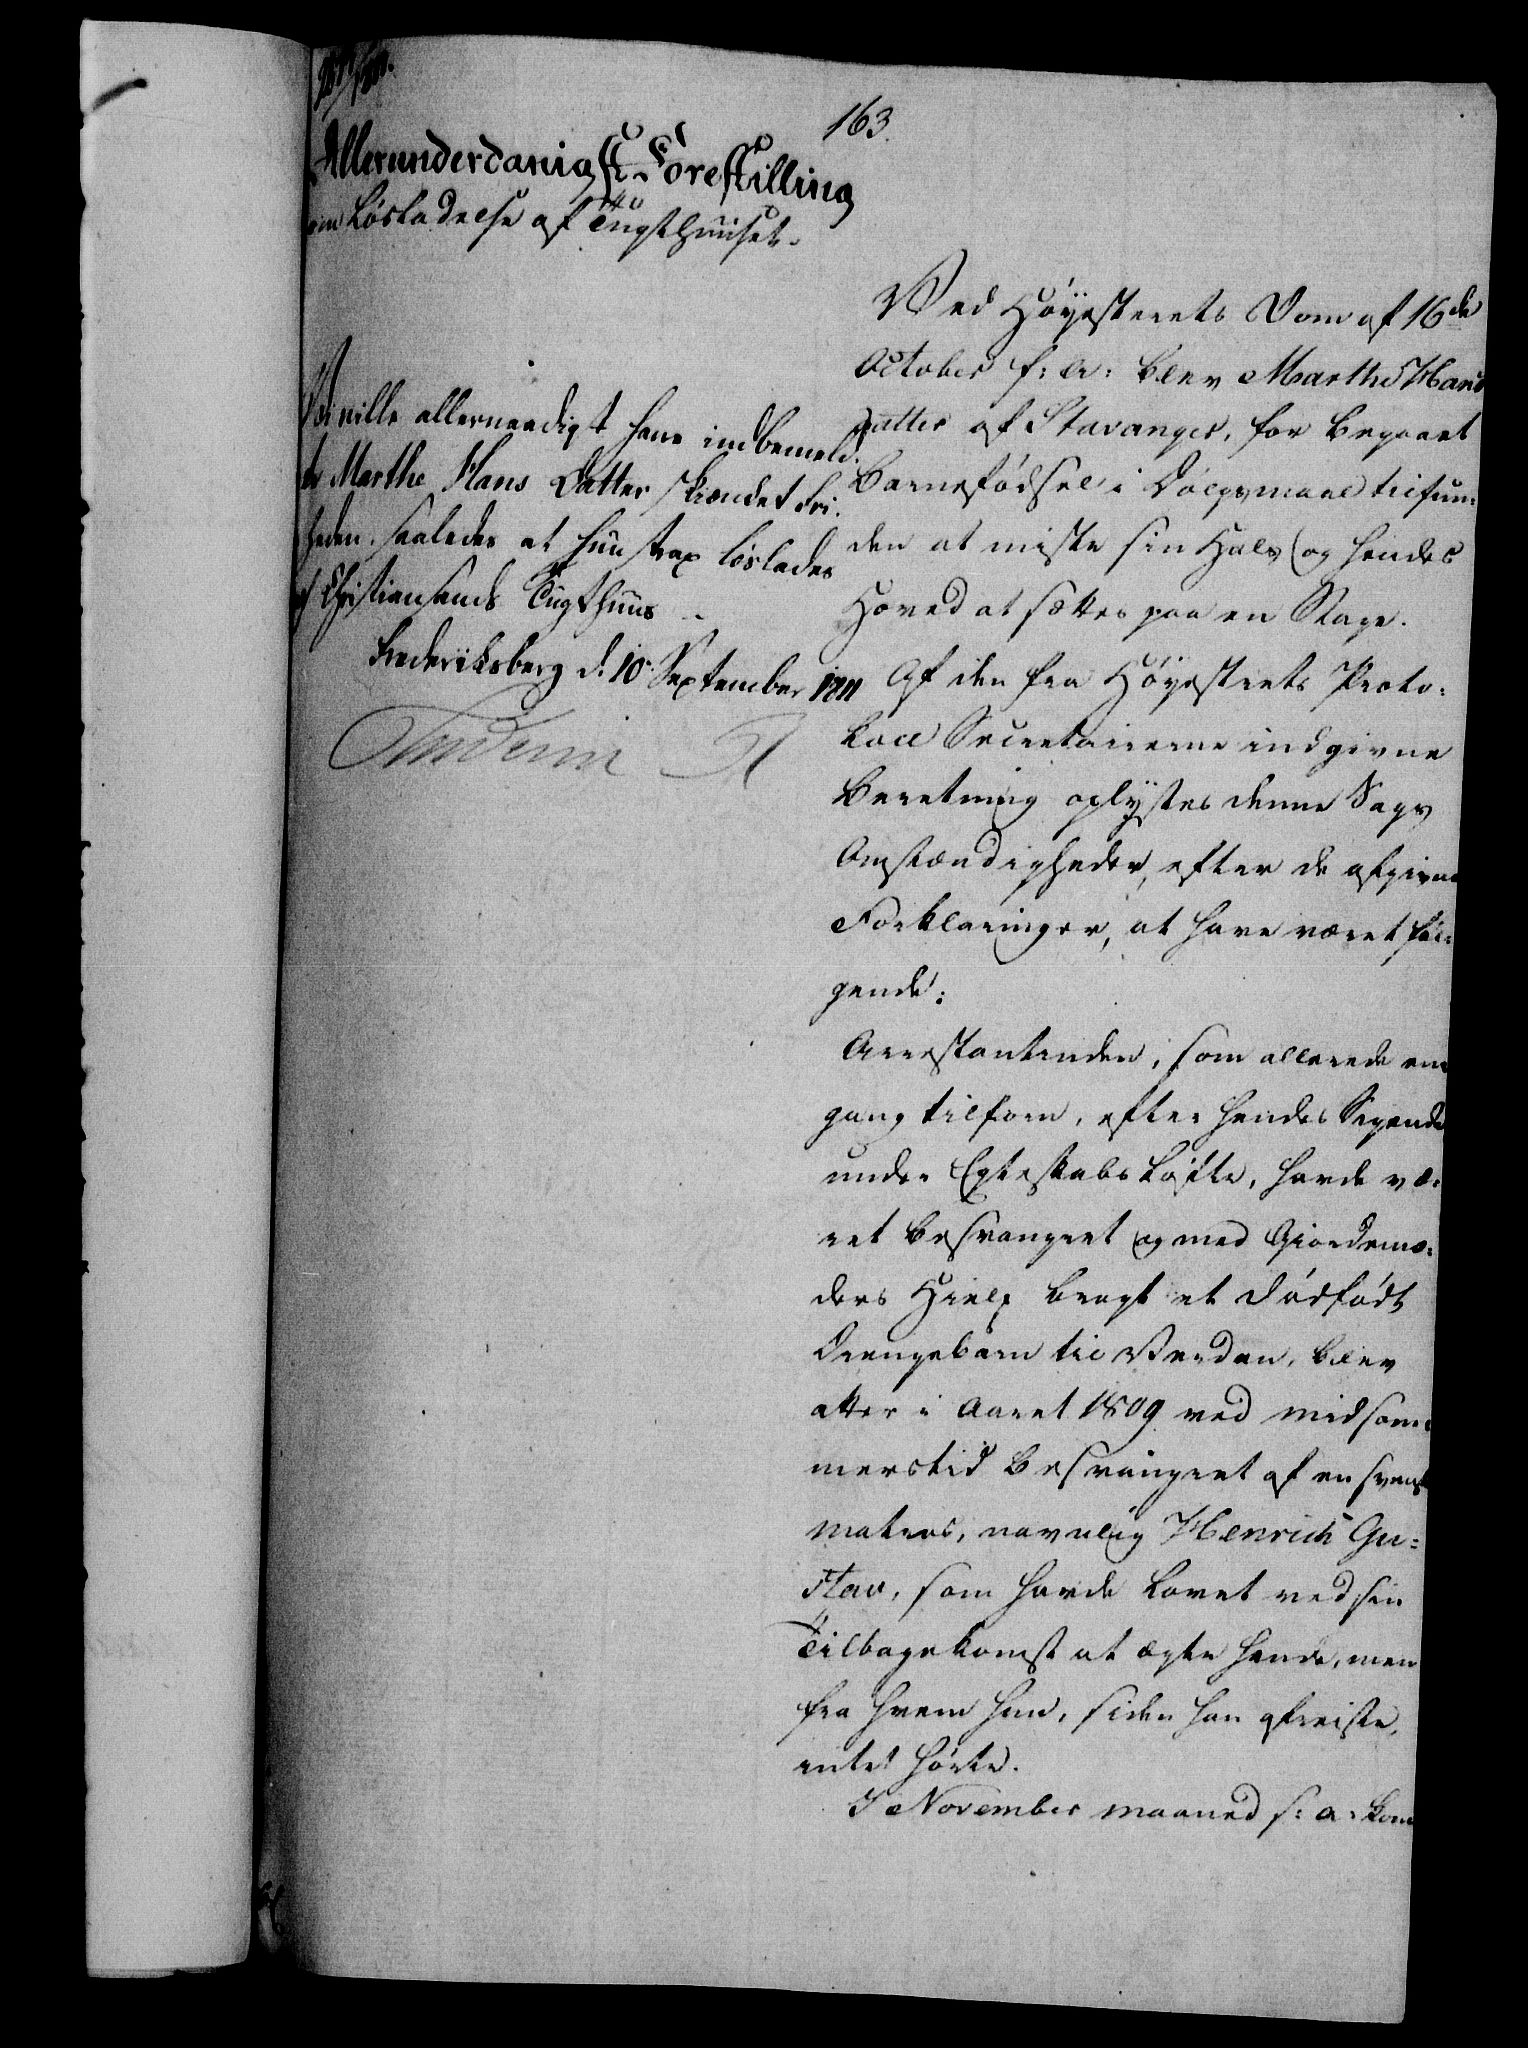 163.
Allerunderdanigst Forestilling
om Løsladelse af Tugthuuset.
Vi ville allernaadigst have indbemeld-
te Marthe Hans Datter skiændet Fri-
heden, saaledes at hun strax løslades
af Christiansands Tugthuus
Frederiksberg d. 10 September 1811
Frederik R
Ved Høyesterets Dom af 16de
October f: A: blev Marthe Hans
Datter af Stavanger, for begaaet
Barnefødsel i Dølgsmaal tilfun-
den at miste sin Hals og hendes
Hoved at sættes paa en Stage.
Af den fra Høyesterets Proto-
koll Secretairerne indgivne
Beretning oplystes denne Sags
Omstændigheder, efter de afgivne
Forklaringer, at have været føl-
gende:
Arrestantinden, som allerede een
gang tilforn, efter hendes Sigende
under Egteskabs Løfte, havde væ-
ret besvangret og med Giordemo-
ders Hielp bragt et dødfødt
Drengebarn til Verden, blev
atter i Aaret 1809 ved midsom-
merstid besvangret af en svensk
Matros, navnlig Henrich Gu-
stav, som havde lovet ved sin
Tilbagekomst at ægte hende, men
fra hvem hun, siden han afreiste,
intet hørte.
I November maaned s: A: kom